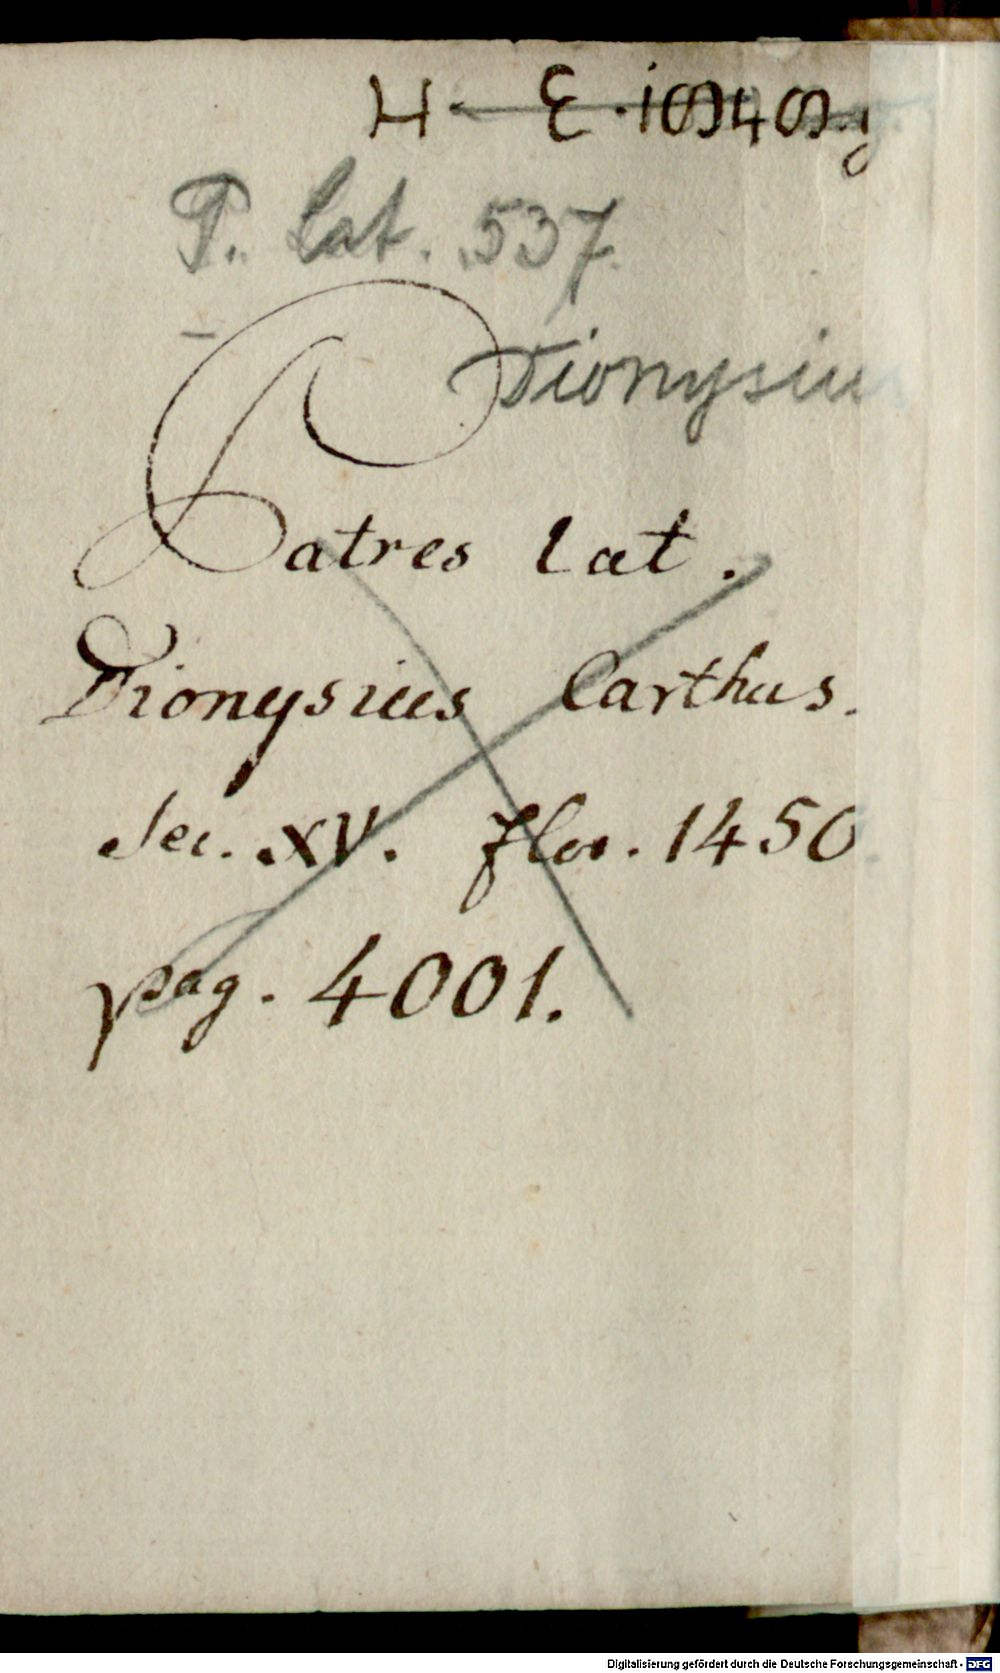 P. lat. 537.
Dionysius
Patres lat.
Dionysius Carthus.
Sec. XV. flor. 1450.
pag. 4001.
Digitalisierung gefördert durch die Deutsche Forschungsgemeinschaft - DFG